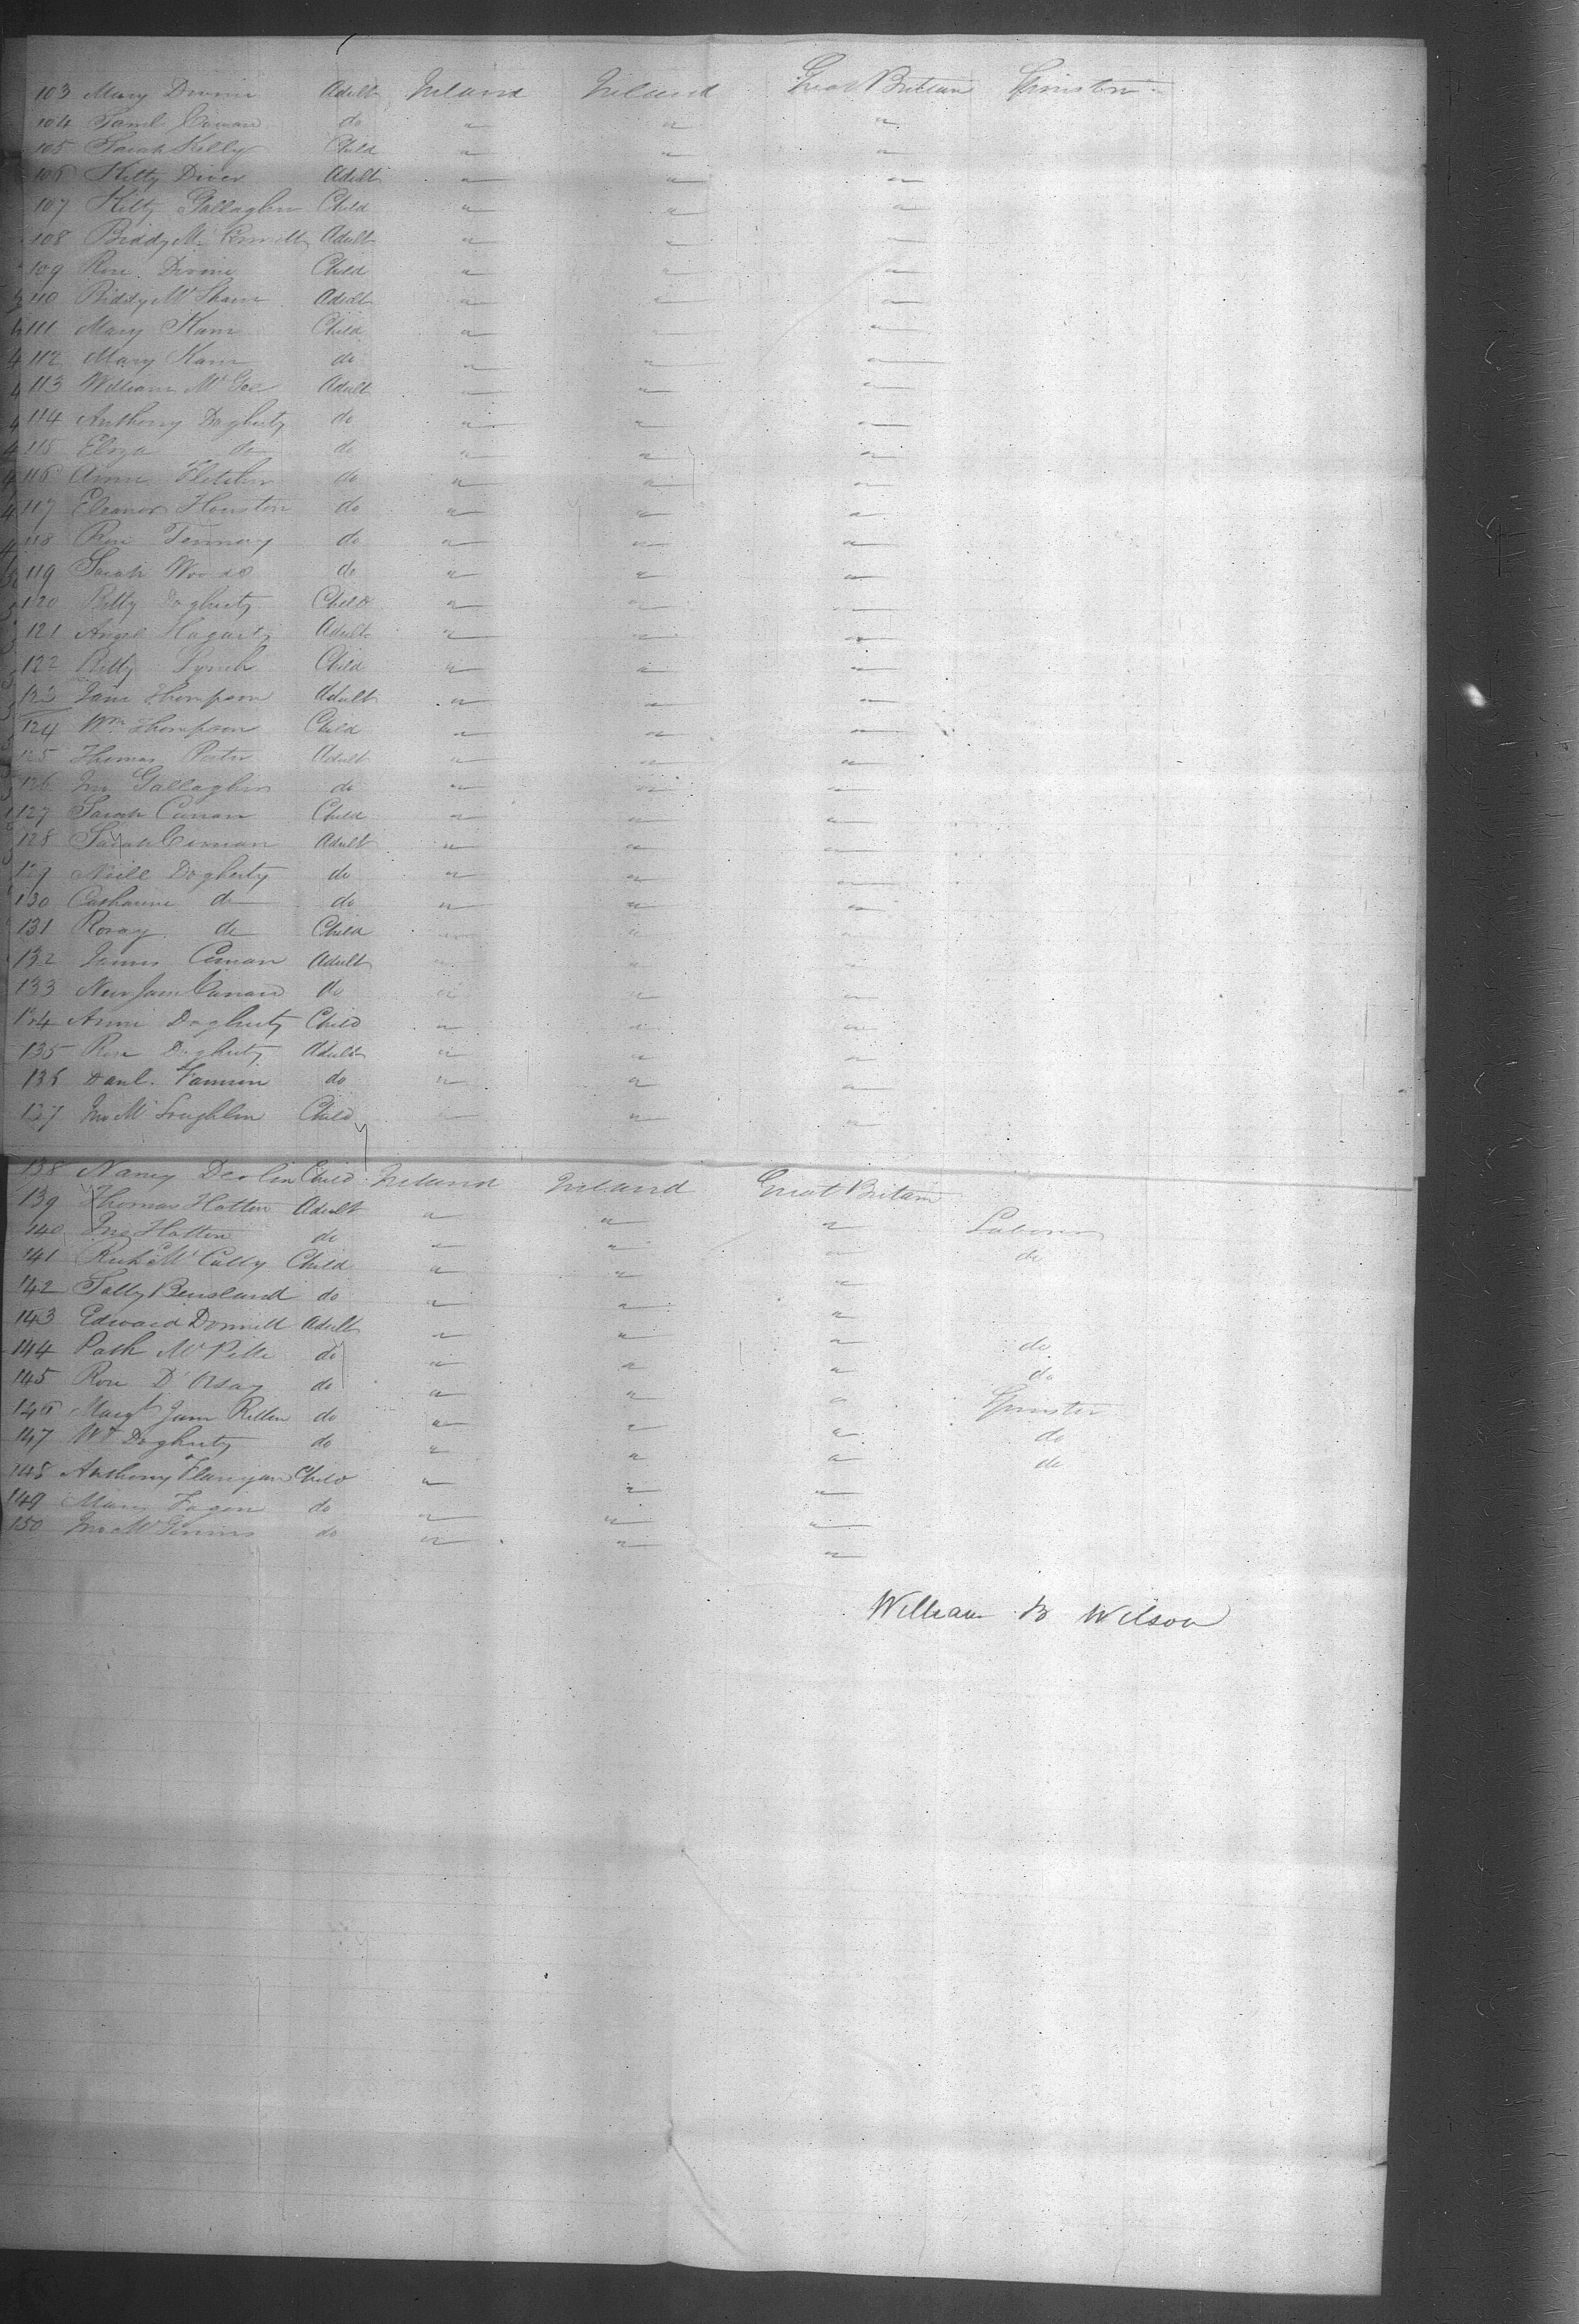 103 Mary Divine Adult Ireland Ireland Great Britain Spinster
104 Saml Conan do " " "
105 Sarah Kelly Child " " "
106 Kitty Diver Adult " " "
107 Kitty Gallagher Child " " "
108 Biddy Mc Connell Adult " " "
109 Rose Divine Child " " "
110 Biddy Mc Shane Adult " " "
111 Mary Kane Child " " "
112 Mary Kane do " " "
113 William McGee Adult " " "
114 Anthony Dogherty do " " "
115 Eliza do do " " "
116 Anne Fletcher do " " "
117 Eleanor Houston do " " "
118 Rose do " " "
119 Sarah Woods do " " "
120 Betty Dogherty Child " " "
121 Hagarty Adult " " "
122 Betty Lynch Child " " "
123 Jane Thompson Adult " " "
124 Wm Thompson Child " " "
125 Thomas Porter Adult " " "
126 Jno Gallagher do " " "
127 Sarah Conan Child " " "
128 Sarah Conan Adult " " "
129 Neill Dogherty do " " "
130 Catharine do do " " "
131 do Child " " "
132 James Conan Adult " " "
133 Jane do " " "
134 Anne Dogherty Child " " "
135 Rose Dogherty Adult " " "
136 Danl. do " " "
137 Jno McLoughlin Child " " "
138 Nancy Devlin Child Ireland Ireland Great Britain
139 Thomas Hatton Adult " " " Laborer
140 Jno Hatton do " " " do
141 Child " " "
142 do " " "
143 Edward Donnell Adult " " " do
144 do " " " do
145 Rose do " " " Spinster
146 Margt Jane do " " " do
147 Dogherty do " " " do
148 Anthony Flanigan Child " " "
149 Mary Fagen do " " "
150 Jno McGinnis do " " "
William B Wilson